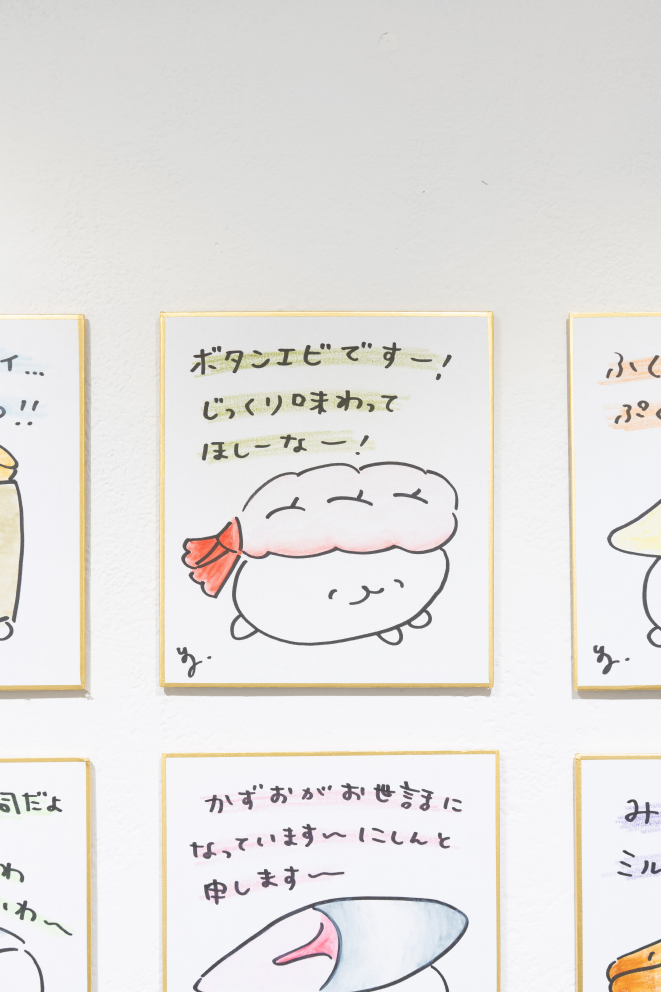 ィ…
!!
ボタンエビですー!
じっくり味わって
ほしーなー!
ふく
ぷく
司だよ
わ
いわ〜
かずおがお世話に
なっています〜にしんと
申します〜
み
ミル